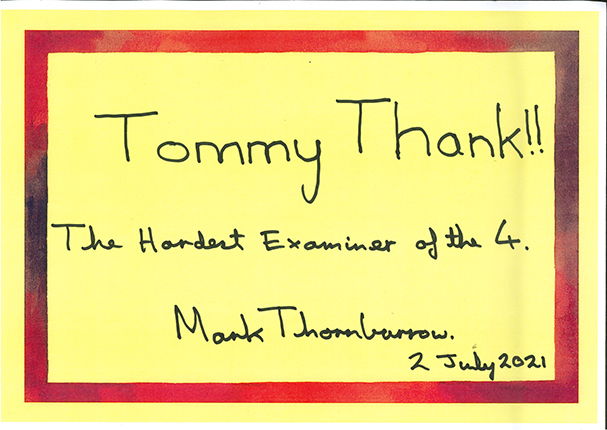 Tommy Thank!!
The Hardest Examiner of the 4.
Mark Thornbarrow.
2 July 2021